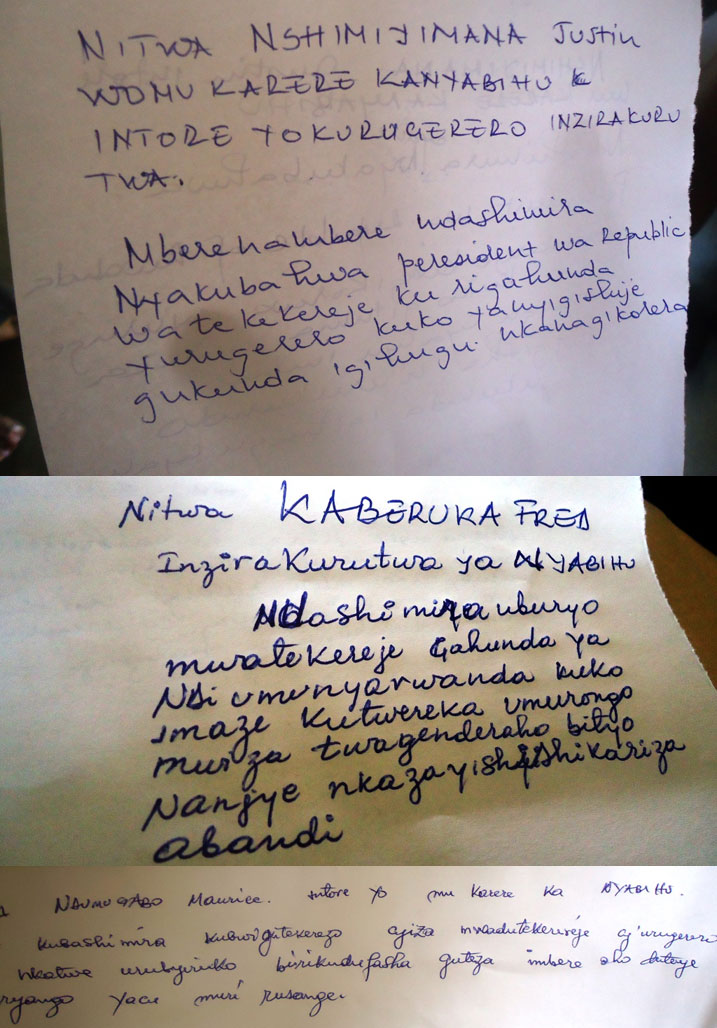 NITWA NSHIMIYIMANA Justin
WOMU KARERE KANYABIHU K
INTORE YOKURUGERERO INZIRAKURU
TWA.
Mberenambere ndashimira
Nyakubahwa peresident wa Republic
watekekereje kurigahunda
yurugerero kuko yanyigishije
gukunda igihugu nkanagikorera
Nitwa KABERUKA FRED
Inzira Kurutwa ya NYABIHU
Ndashimira uburyo
mwatekereje Gahunda ya
Ndi umunyarwanda kuko
imaze kutwereka umurongo
muriza twagenderaho bityo
Nanjye nkazayishishikariza
abandi
Maurice. intore yo mu karere ka NYABIHU.
kubashimira kubw'igitekerezo cyiza mwadutekerereje cy'urugerero
nkatwe urubyiruko birikudufasha guteza imbere aho dutuye
ryango yacu muri rusange.